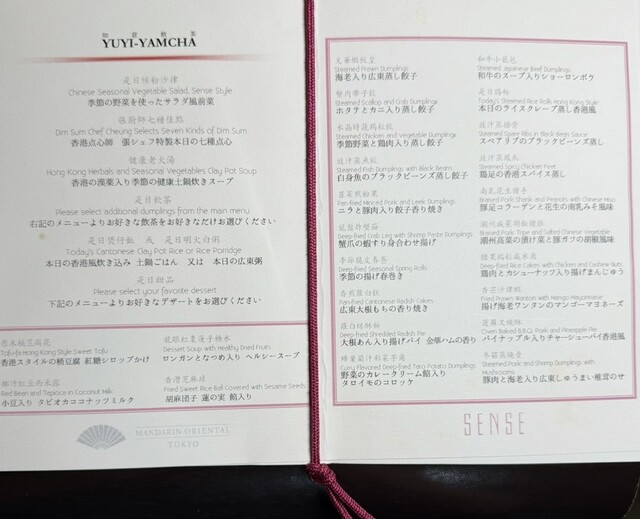 如意飲茶
YUYI-YAMCHA
是日採粉沙律
Chinese Seasonal Vegetable Salad, Sense Style
季節の野菜を使ったサラダ風前菜
張廚師七種佳點
Dim Sum Chef Cheung Selects Seven Kinds of Dim Sum
香港点心師 張シェフ特製本日の七種点心
健康老火湯
Hong Kong Herbals and Seasonal Vegetables Clay Pot Soup
香港の漢薬入り季節の健康土鍋炊きスープ
是日飲茶
Please select additional dumplings from the main menu
右記のメニューよりお好きな飲茶をお好きなだけお選びください
是日煲仔飯 或 是日明火白粥
Today's Cantonese Clay Pot Rice or Rice Porridge
本日の香港風炊き込み 土鍋ごはん 又は 本日の広東粥
是日甜品
Please select your favorite dessert
下記のメニューよりお好きなデザートをお選びください
Tofu-fa Hong Kong Style Sweet Tofu
香港スタイルの桶豆腐 紅糖シロップかけ
椰汁紅豆西米露
Red Bean and Tapioca in Coconut Milk
小豆入り タピオカココナッツミルク
龍眼紅棗蓮子糖水
Dessert Soup with Healthy Dried Fruits
ロンガンとなつめ入り ヘルシースープ
香滑芝麻球
Fried Sweet Rice Ball Covered with Sesame Seeds
胡麻団子 蓮の実 餡入り
MANDARIN ORIENTAL
TOKYO
文華蝦餃皇
Steamed Prawn Dumplings
海老入り広東蒸し餃子
蟹肉帶子餃
Steamed Scallop and Crab Dumplings
ホタテとカニ入り蒸し餃子
Steamed Chicken and Vegetable Dumplings
季節野菜と鶏肉入り蒸し餃子
豉汁蒸魚餃
Steamed Fish Dumplings with Black Beans
白身魚のブラックビーンズ蒸し餃子
韮菜煎粉果
Pan Fried Minced Pork and Leek Dumplings
ニラと豚肉入り餃子香り焼き
Deep-fried Crab Leg with Shrimp Paste Dumplings
蟹爪の蝦すり身合わせ揚げ
季節脆皮春巻
Deep-fried Seasonal Spring Rolls
季節の揚げ春巻き
香煎蘿白糕
Pan-fried Cantonese Radish Cakes
広東大根もちの香り焼き
蘿白絲酥餅
Deep-fried Shredded Radish Pies
大根あん入り揚げパイ 金華ハムの香り
蜂巢茄汁野菜芋角
Curry Flavored Deep-fried Taro Potato Dumplings
野菜のカレークリーム餡入り
タロイモのコロッケ
和牛小籠包
Steamed Japanese Beef Dumplings
和牛のスープ入りショーロンポウ
是日腸粉
Today's Steamed Rice Rolls Hong Kong Style
本日のライスクレープ蒸し香港風
豉汁蒸排骨
Steamed Spare Ribs in Black Bean Sauce
スペアリブのブラックビーンズ蒸し
豉汁蒸鳳爪
Steamed Spicy Chicken Feet
鶏足の香港スパイス蒸し
南乳花生猪手
Braised Pork Shank and Peanuts with Chinese Miso
豚足コラーゲンと花生の南乳みそ風味
Braised Pork Tripe and Salted Chinese Vegetable
潮州高菜の漬け菜と豚ガツの胡椒風味
Deep-fried Cakes with Chicken and Cashew Nuts
鶏肉とカシューナッツ入り揚げまんじゅう
香芒沙律蝦
Fried Prawn Wanton with Mango Mayonnaise
揚げ海老ワンタンのマンゴーマヨネーズ
菠蘿叉焼酥
Oven Baked B.B.Q. Pork and Pineapple Pie
パイナップル入りチャーシューパイ香港風
冬菇蒸焼賣
Steamed Pork and Shrimp Dumplings with Mushrooms
豚肉と海老入り広東しゅうまい椎茸のせ
SENSE